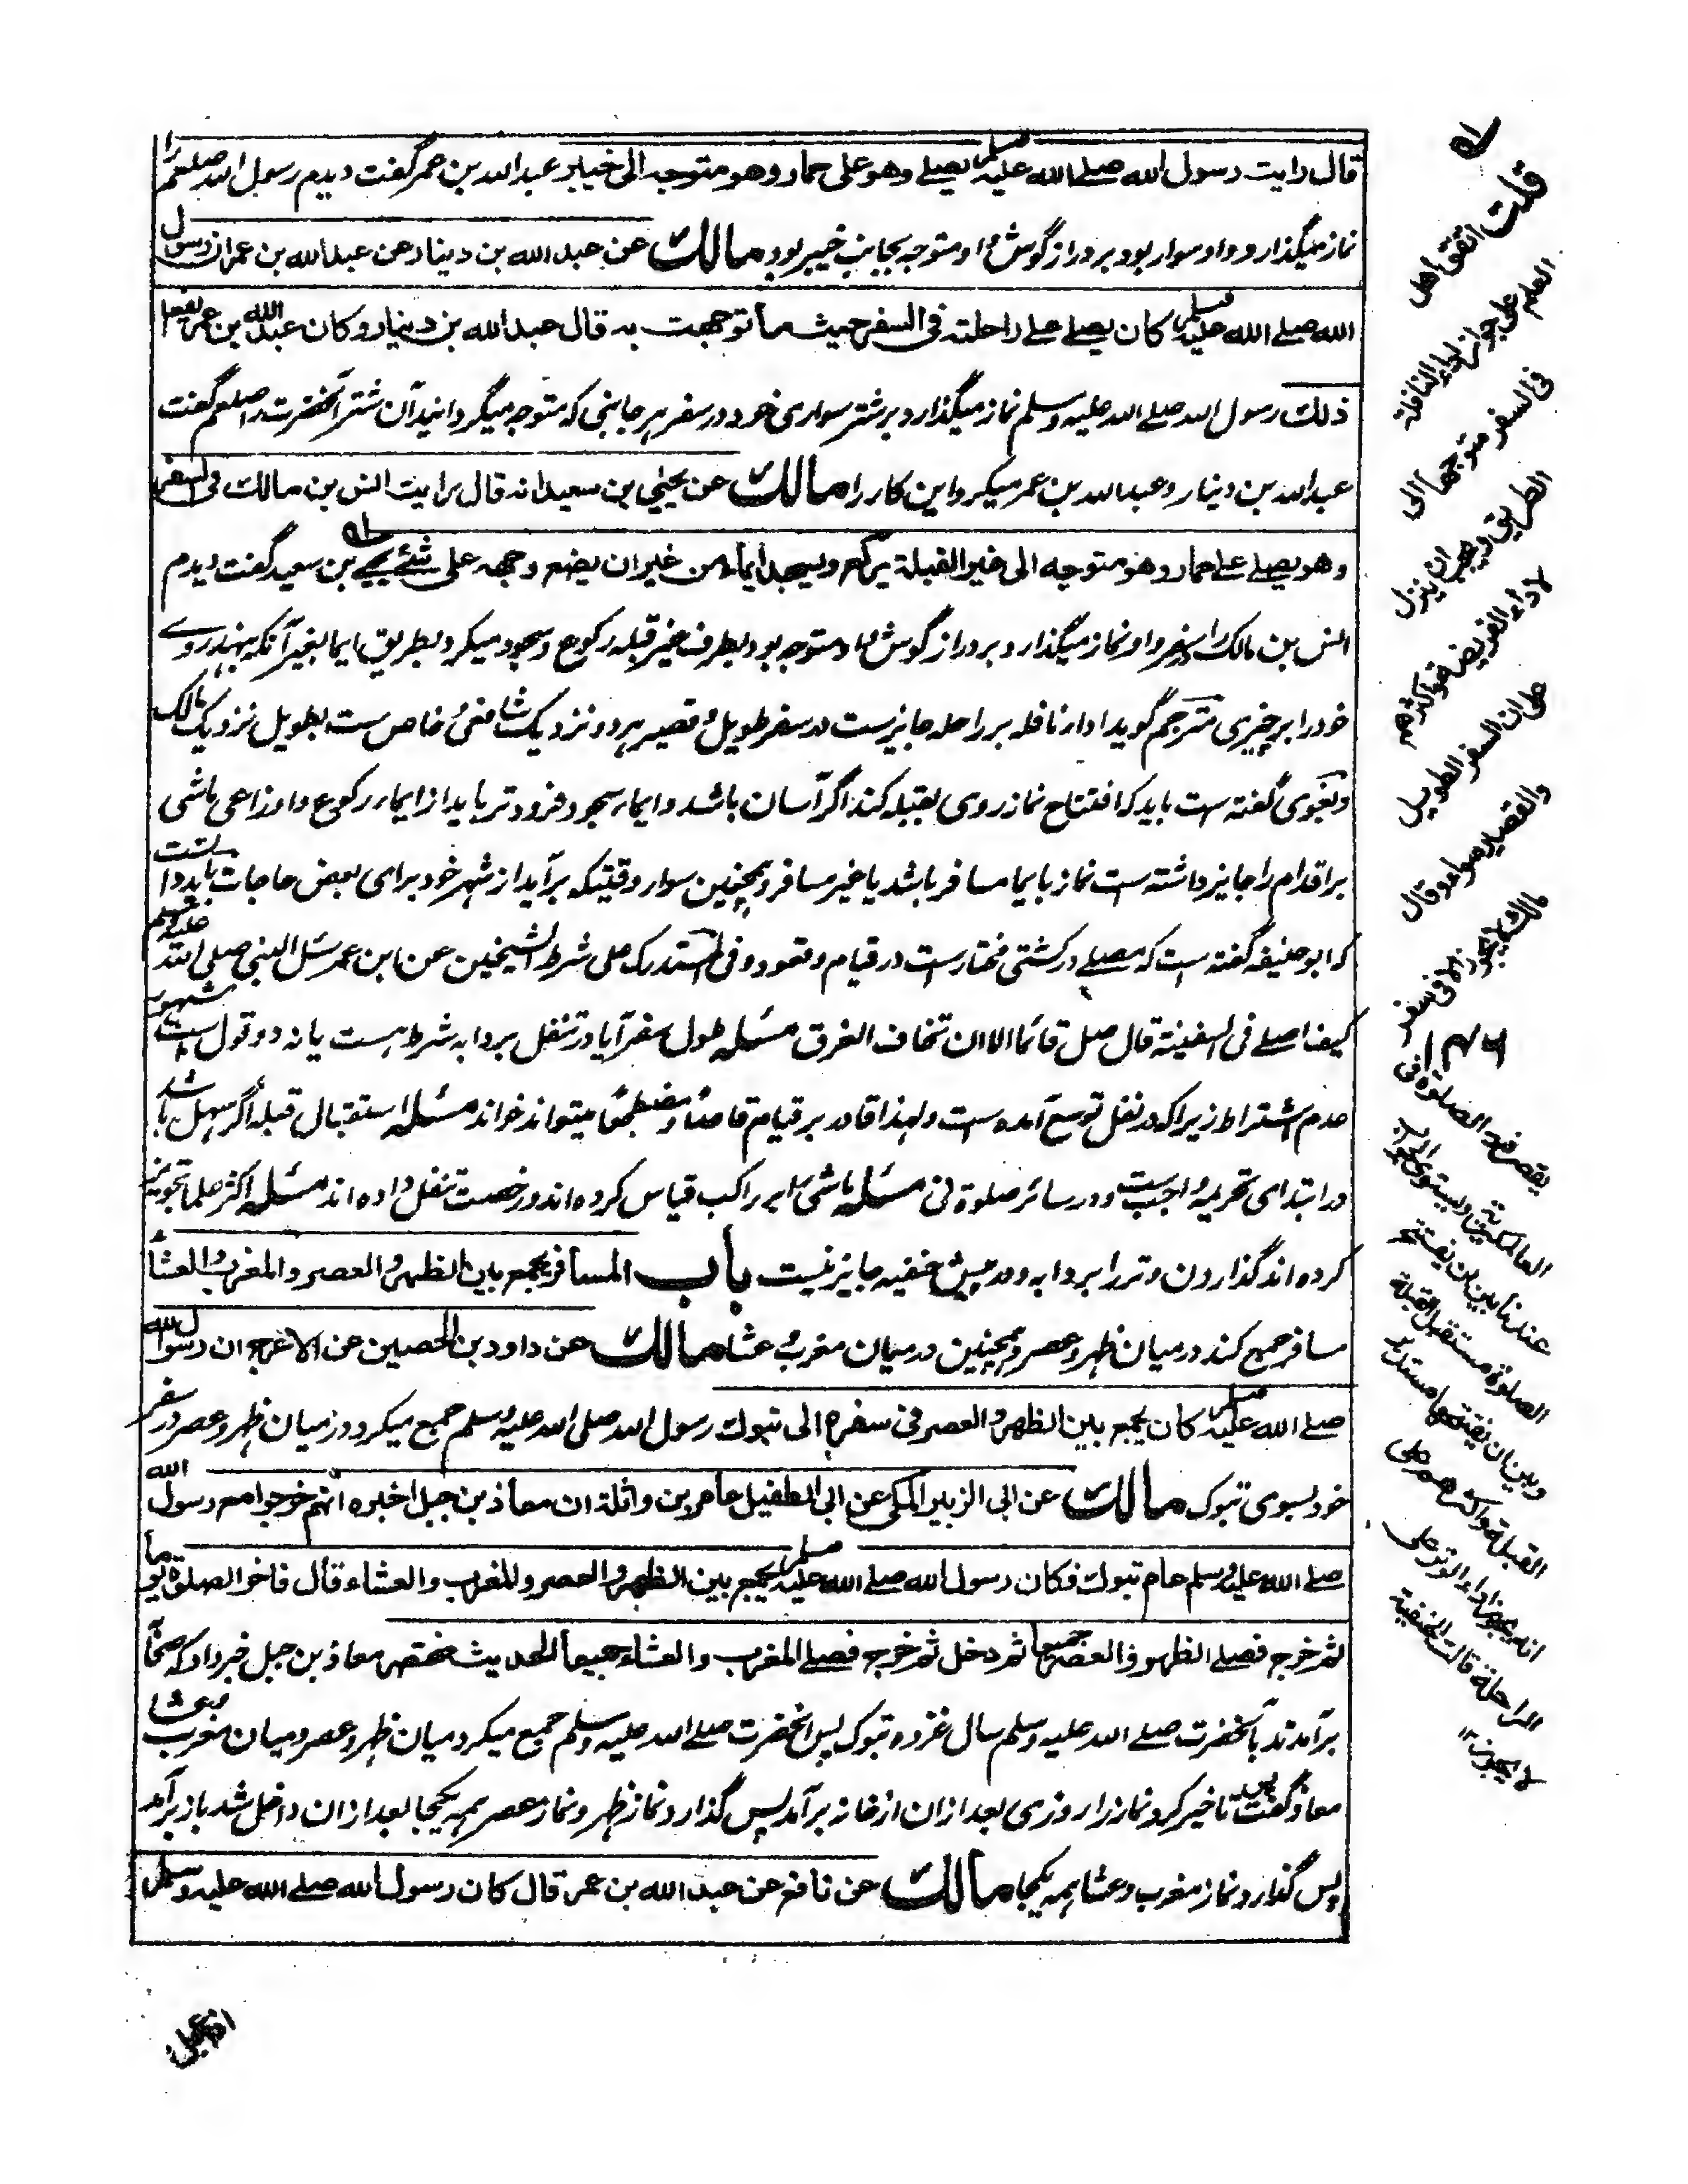 قال رايت رسول الله صلے الله عليه وسلم يصلے وهو على حمار وهو متوجه الى خيبر عبدالله بن عمر گفت ديدم رسول الله صلعم را
نماز ميگذارد و او سوار بود بر دراز گوش و او متوجه بجانب خيبر بود مالك عن عبد الله بن دينار عن عبد الله بن عمر ان رسول
الله صلے الله عليه وسلم كان يصلے علے راحلته فى السفر حيث ما توجهت به قال عبد الله بن دينار وكان عبد الله بن عمر يفعل
ذلك رسول الله صلے الله عليه وسلم نماز ميگذارد بر شتر سوارى خود در سفر بهر جانبى كه متوجه ميگردانيد آن شتر آنحضرت را صلعم گفت
عبد الله بن دينار و عبد الله بن عمر ميكرد اين كار را مالك عن يحيٰى بن سعيد انه قال رايت انس بن مالك فى السفر
وهو يصلے علے حمار وهو متوجه الى غير القبلة يركع ويسجد ايماء من غير ان يضع وجهه على شئے يحيے بن سعيد گفت ديدم
انس بن مالك را در سفر و او نماز ميگذارد بر دراز گوش و او متوجه بود بطرف غير قبله ركوع و سجود ميكرد بطريق ايما بغير آنكه بنهد روے
خود را بر چيزى مترجم گويد اداء نافله بر راحله جايزست در سفر طويل و قصير هر دو نزديك شافعى و خاص ست بطويل نزديك مالك
و بغوى گفته ست بايد كه افتتاح نماز روى بقبله كند اگر آسان باشد و ايماء سجود فرودتر بايد از ايماء ركوع و اوزاعى ماشى
بر اقدام را جايز داشته ست نماز بايما مسافر باشد يا غير مسافر و همچنين سوار وقتيكه برآيد از شهر خود براى بعض حاجات بايد دانست
كه ابو حنيفه گفته است كه مصلے در كشتى مختارست در قيام و قعود و فى المستدرك على شرط الشيخين عن ابن عمر سئل النبى صلى الله عليه وسلم
كيف اصلے فى السفينة قال صل قائما الا ان تخاف الغرق مسئله طول سفر آيا در تنفل بر دابه شرط هست يا نه دو قول ست مشهور
عدم اشتراط زيرا كه در نفل توسع آمده ست و لهذا قادر بر قيام قاعدًا و مضطجعًا ميتواند خواند مسئله استقبال قبله اگر سهل باشد
در ابتداى تحريمه واجب ست و در سائر صلوة نى مسئله ماشى را بر راكب قياس كرده اند و رخصت تنفل داده اند مسئله اكثر علما تجويز
كرده اند گذاردن وتر را بر دابه و در پيش حنفيه جايز نيست باب المسافر يجمع بين الظهر والعصر والمغرب والعشاء
مسافر جمع كند درميان ظهر و عصر و همچنين درميان مغرب و عشا مالك عن داود بن الحصين عن الاعرج ان رسول الله
صلے الله عليه وسلم كان يجمع بين الظهر والعصر فى سفره الى تبوك رسول الله صلى الله عليه وسلم جمع ميكرد درميان ظهر و عصر در سفر
خود بسوى تبوك مالك عن ابى الزبير المكى عن ابى الطفيل عامر بن واثلة ان معاذ بن جبل اخبره انهم خرجوا مع رسول الله
صلے الله عليه وسلم عام تبوك فكان رسول الله صلے الله عليه وسلم يجمع بين الظهر والعصر والمغرب والعشاء قال فاخر الصلوة يوما
ثم خرج فصلے الظهر والعصر جميعا ثم دخل ثم خرج فصلے المغرب والعشاء جميعا الحديث مختصر معاذ بن جبل خبر داد كه صحابه
برآمدند با آنحضرت صلے الله عليه وسلم سال غزوه تبوك پس آنحضرت صلے الله عليه وسلم جمع ميكرد ميان ظهر و عصر و ميان مغرب و عشا
معاذ گفت پس تاخير كرد نماز را روزى بعد ازان از خانه برآمد پس گذارد نماز ظهر و نماز عصر همه يكجا بعد ازان داخل شد باز برآمد
پس گذارد نماز مغرب و عشا همه يكجا مالك عن نافع عن عبد الله بن عمر قال كان رسول الله صلے الله عليه وسلم
قلت اتفق اهل
العلم على جواز اداء النافلة
فى السفر متوجها الى
الطريق ويجب ان ينزل
لاداء الفريضة واكثرهم
على ان السفر الطويل
والقصير سواء وقال
مالك لا يجوز الا فى سفر
يقصر فيه الصلوة وفى
العالمكيرية ويستوى الجواب
عندنا بين ان يفتتح
الصلوة مستقبل القبلة
وبين ان يفتتحها مستدبر
القبلة واكثرهم على
انه يجوز اداء الوتر على
الراحلة قالت الحنفية
لا يجوز ١٢